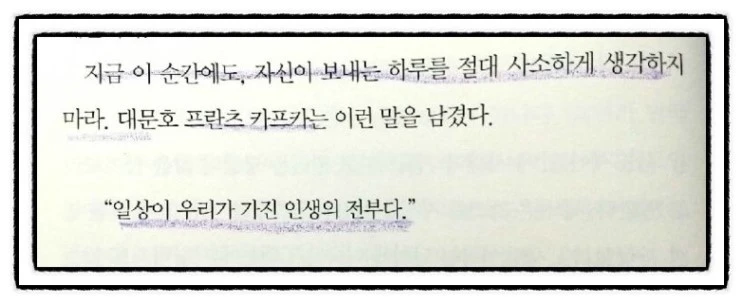 지금 이 순간에도, 자신이 보내는 하루를 절대 사소하게 생각하지
마라. 대문호 프란츠 카프카는 이런 말을 남겼다.
“일상이 우리가 가진 인생의 전부다.”